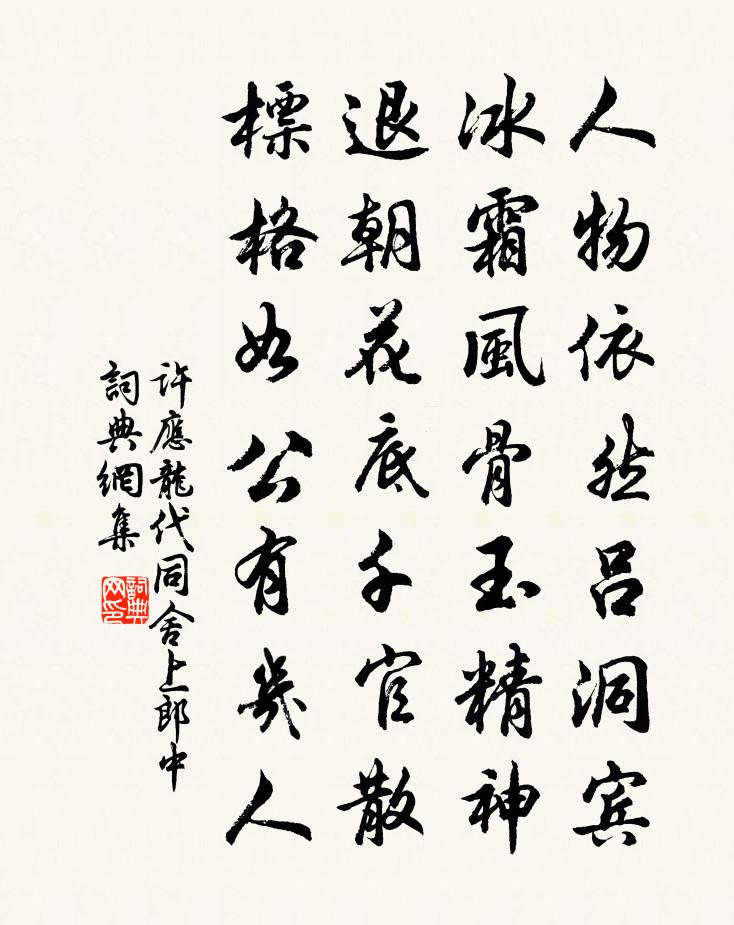 人物依然吕洞宾
冰霜風骨玉精神
退朝花底千官散
標格如公有幾人
許應龍代同舍上郎中
詞典網集
詞典網印